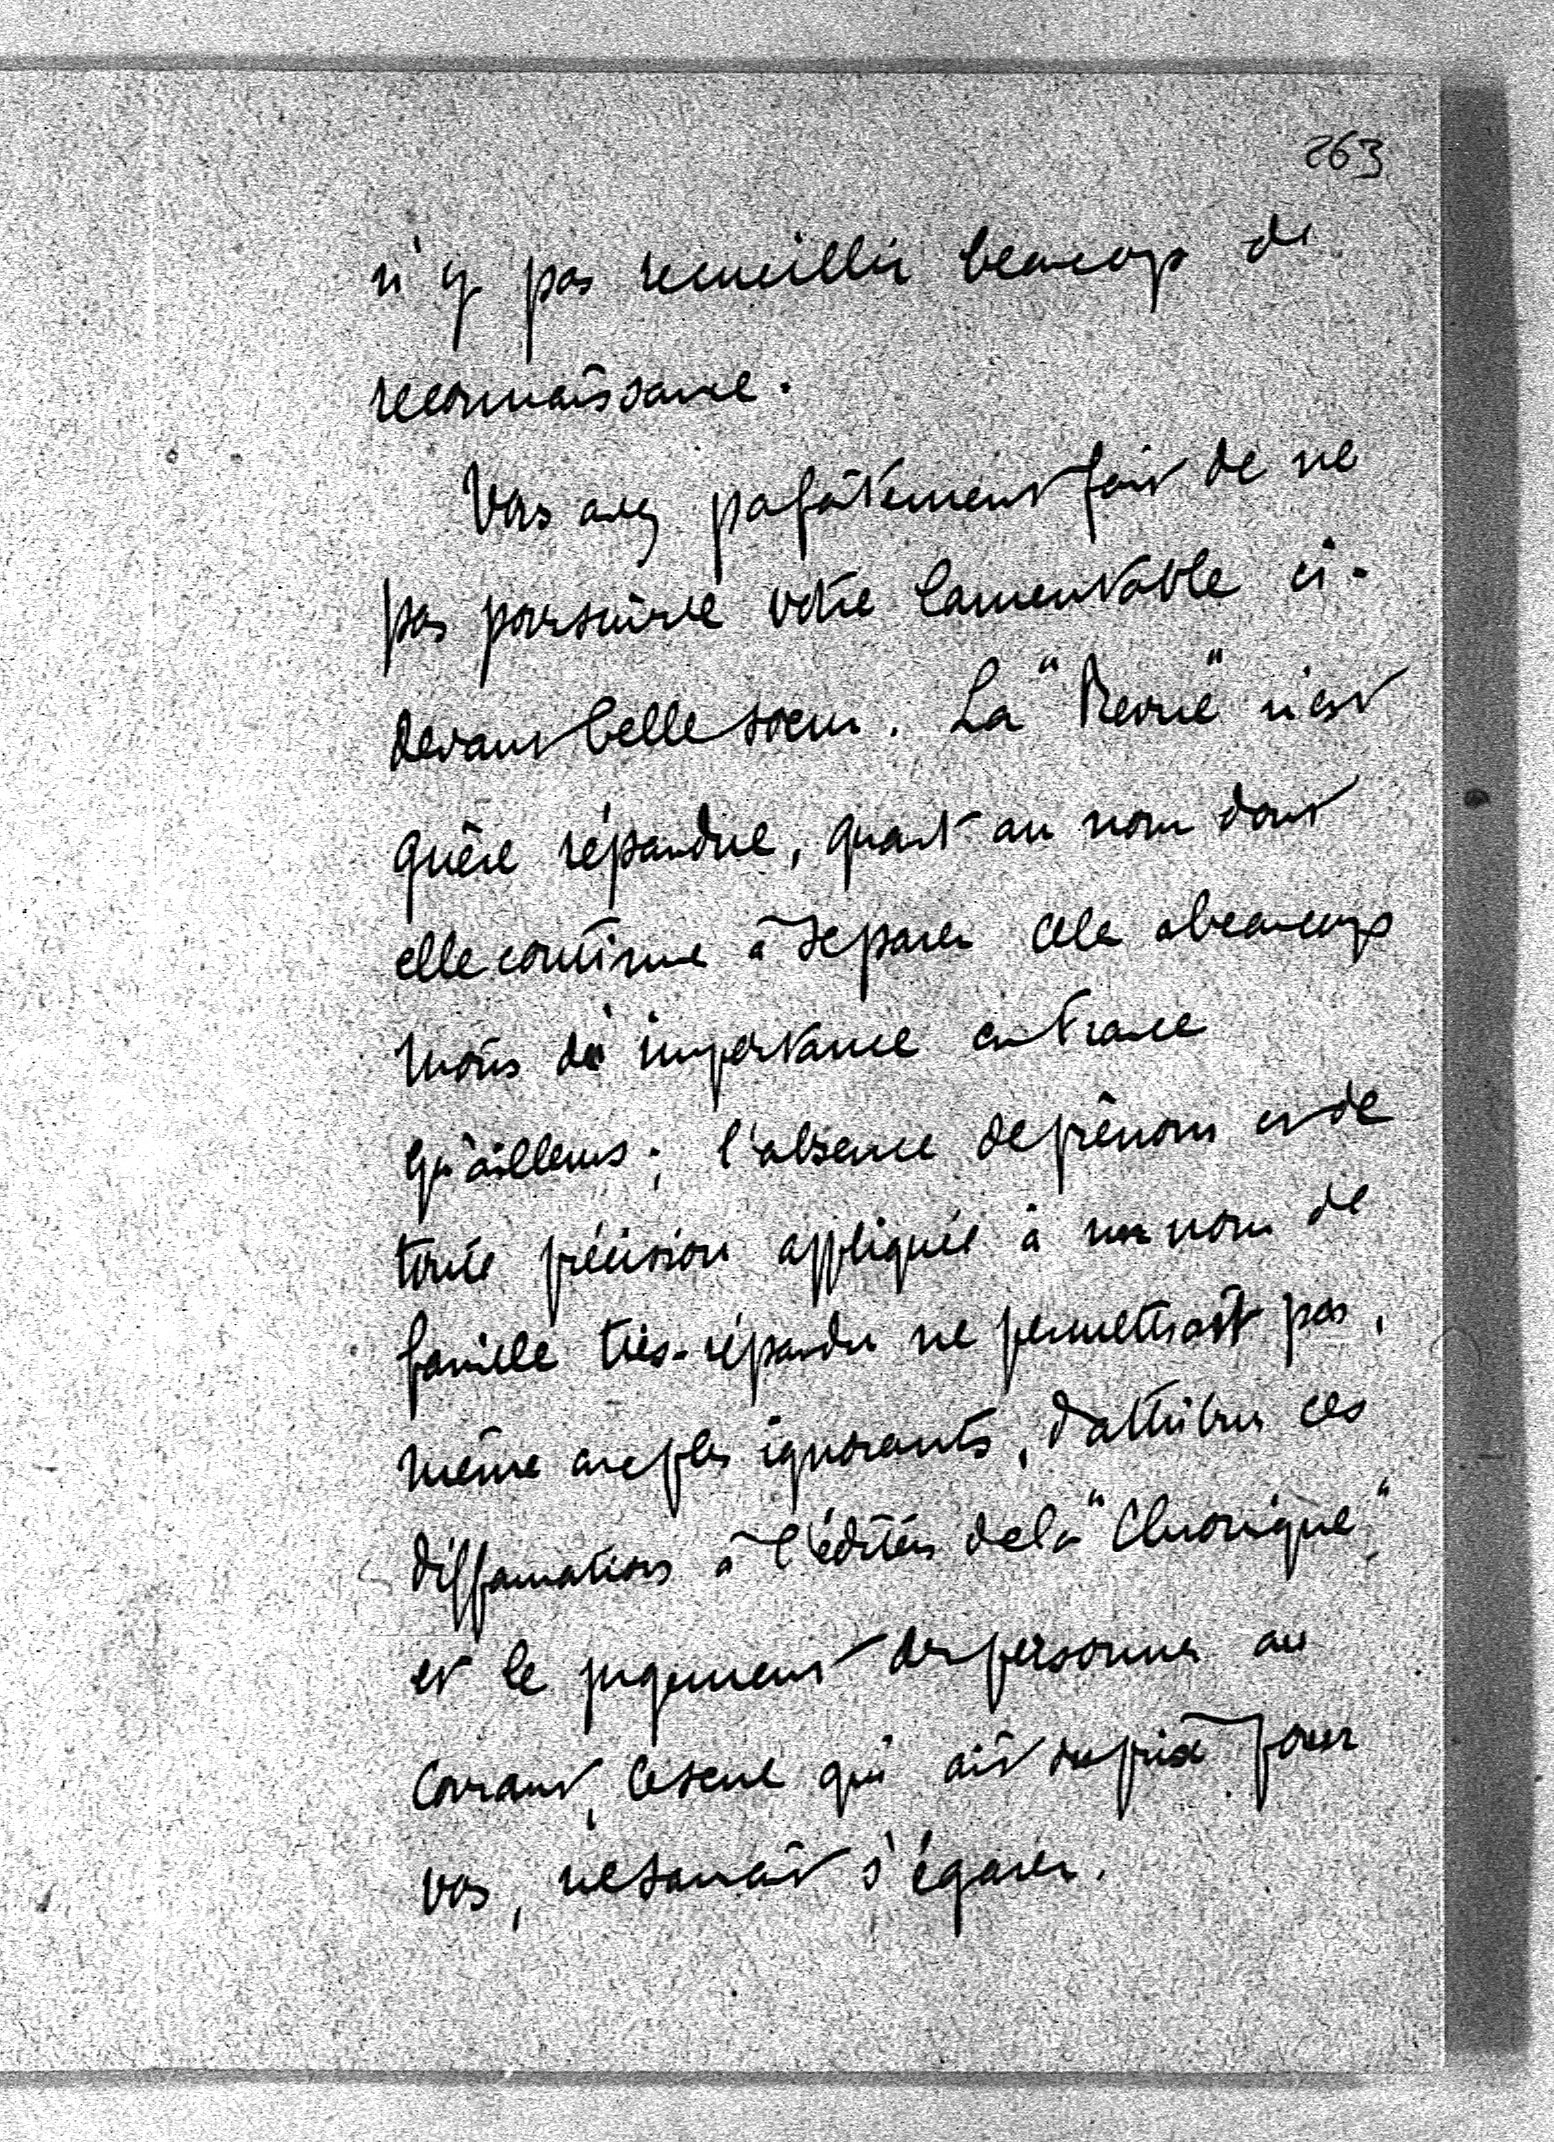 263
n'y pas recueillir beaucoup de
reconnaissance.
Vous avez parfaitement fait de ne
pas poursuivre votre lamentable ci-
devant belle soeur. La "Revue" n'est
guère répandue, quant au nom dont
elle continue à se parer cela a beaucoup
moins d'importance en France
qu'ailleurs ; l'absence de prénom et de
toute précision appliquée à un nom de
famille très-répandu ne permettrait pas,
même aux plus ignorants, d'attribuer ces
diffamations à l'éditeur de la "Chronique"
et le jugement des personnes au
courant, le seul qui ait du prix pour
vous, ne saurait s'égarer.